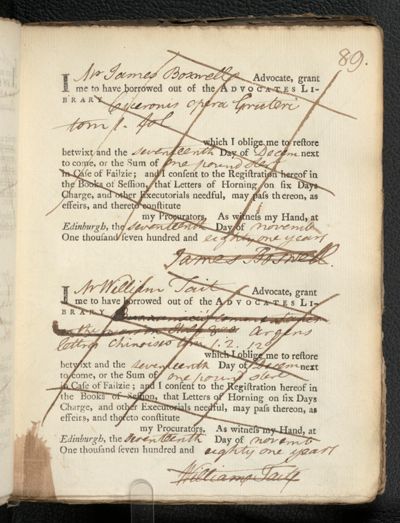 89.
I Mr James Boswell Advocate, grant
me to have borrowed out of the ADVOCATES LI-
BRARY Ciceronis opera Gruteri
tom 1. fol
which I oblige me to reſtore
betwixt and the seventeenth Day of Decem next
to come, or the Sum of one pound ster
in Caſe of Failzie; and I conſent to the Regiſtration hereof in
the Books of Seſſion, that Letters of Horning on ſix Days
Charge, and other Executorials needful, may paſs thereon, as
effeirs, and thereto conſtitute
my Procurators. As witneſs my Hand, at
Edinburgh, the seventeenth Day of novemb
One thouſand ſeven hundred and eighty one years
James Boswell
I Mr William Tait Advocate, grant
me to have borrowed out of the ADVOCATES LI-
BRARY
Argens
Lettres chinoises tom 1.2. 12o
which I oblige me to reſtore
betwixt and the seventeenth Day of Decem next
to come, or the Sum of one pound ster
in Caſe of Failzie; and I conſent to the Regiſtration hereof in
the Books of Seſſion, that Letters of Horning on ſix Days
Charge, and other Executorials needful, may paſs thereon, as
effeirs, and thereto conſtitute
my Procurators. As witneſs my Hand, at
Edinburgh, the seventeenth Day of novemb
One thouſand ſeven hundred and eighty one years
William Tait